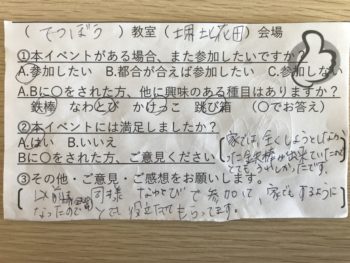 ( てつぼう )教室(堺北花田)会場
①本イベントがある場合、また参加したいですか?
A.参加したい B.都合が合えば参加したい C.参加しない
A.Bに〇をされた方、他に興味のある種目はありますか?
鉄棒 なわとび かけっこ 跳び箱 (〇でお答え)
②本イベントには満足しましたか?
A.はい B.いいえ
Bに〇をされた方、ご意見ください
家では、全くしようとしなか
った鉄棒が出来ていたので
とても うれしかったです。
③その他・ご意見・ご感想をお願いします。
以前 同様 なわとびで参加して、家でもするように
なったので とても役立たせてもらってます。